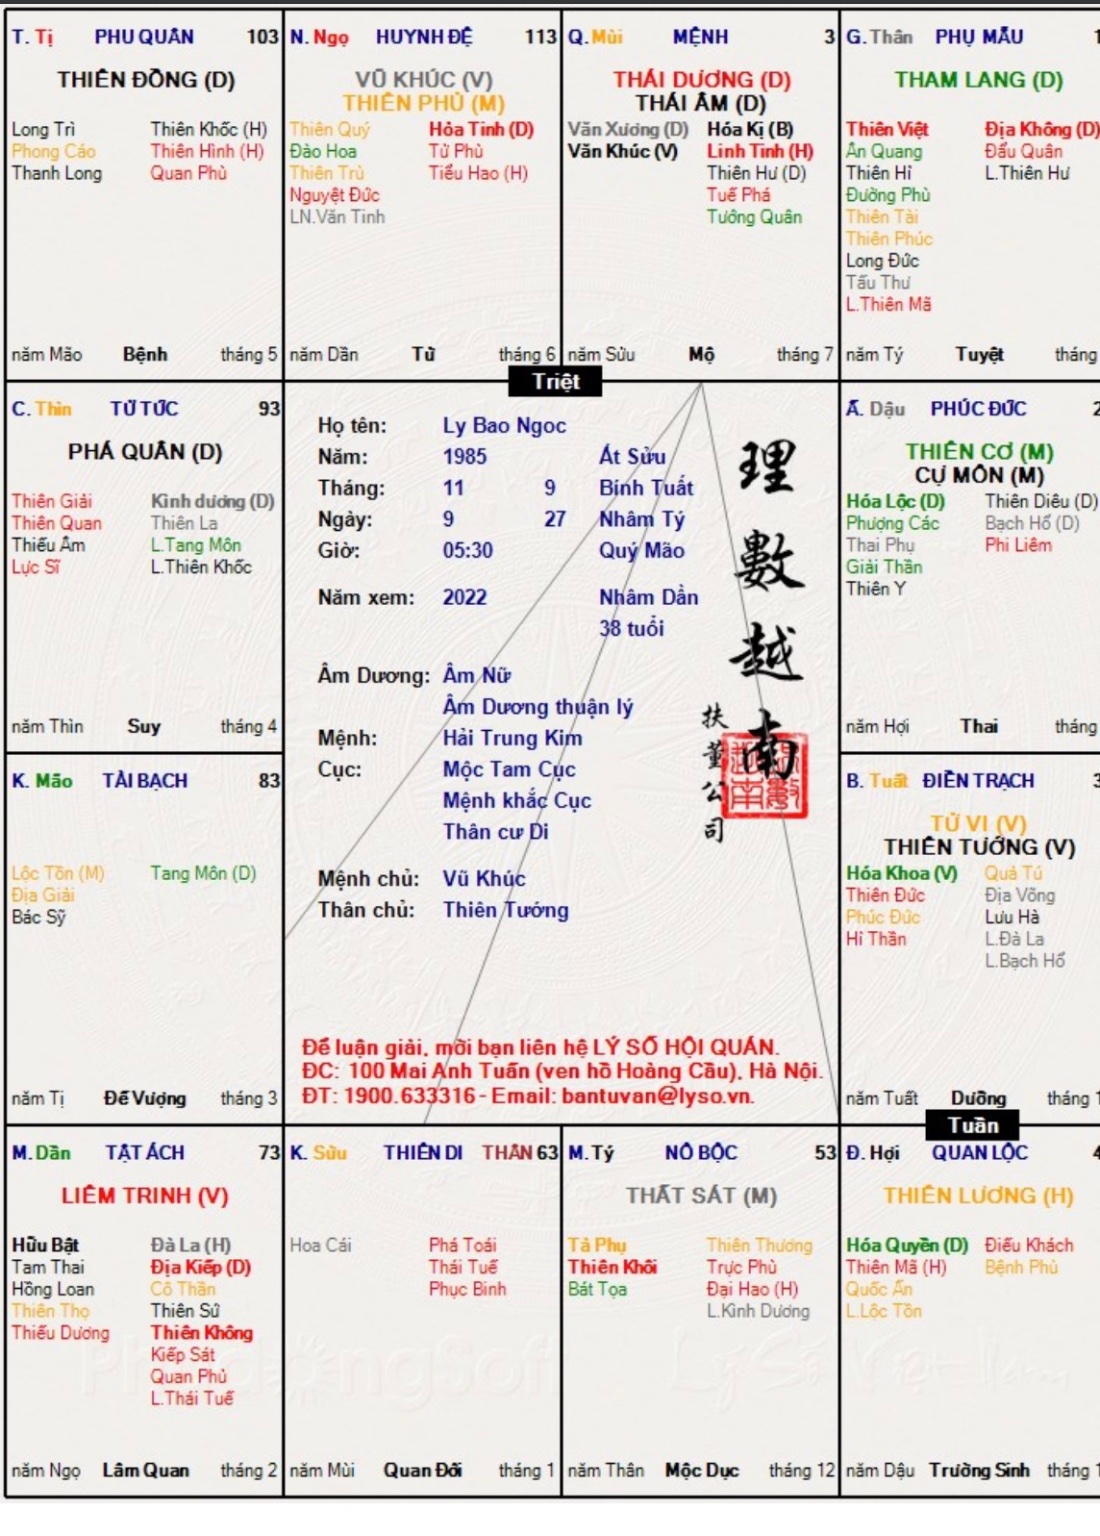 T. Tị PHU QUÂN 103
THIÊN ĐỒNG (D)
Long Trì Thiên Khốc (H)
Phong Cáo Thiên Hình (H)
Thanh Long Quan Phù
năm Mão Bệnh tháng 5
N. Ngọ HUYNH ĐỆ 113
VŨ KHÚC (V)
THIÊN PHỦ (M)
Thiên Quý Hỏa Tinh (D)
Đào Hoa Tử Phù
Thiên Trù Tiểu Hao (H)
Nguyệt Đức
LN.Văn Tinh
năm Dần Tử tháng 6
Q. Mùi MỆNH 3
THÁI DƯƠNG (D)
THÁI ÂM (D)
Văn Xương (D) Hóa Kị (B)
Văn Khúc (V) Linh Tinh (H)
Thiên Hư (D)
Tuế Phá
Tướng Quân
năm Sửu Mộ tháng 7
G. Thân PHỤ MẪU 1
THAM LANG (D)
Thiên Việt Địa Không (D)
Ân Quang Đẩu Quân
Thiên Hỉ L.Thiên Hư
Đường Phù
Thiên Tài
Thiên Phúc
Long Đức
Tấu Thư
L.Thiên Mã
năm Tý Tuyệt tháng
Triệt
C. Thìn TỬ TỨC 93
PHÁ QUÂN (D)
Thiên Giải Kình dương (D)
Thiên Quan Thiên La
Thiếu Âm L.Tang Môn
Lực Sĩ L.Thiên Khốc
năm Thìn Suy tháng 4
Họ tên: Ly Bao Ngoc
Năm: 1985 Ất Sửu
Tháng: 11 9 Bính Tuất
Ngày: 9 27 Nhâm Tý
Giờ: 05:30 Quý Mão
Năm xem: 2022 Nhâm Dần
38 tuổi
Âm Dương: Âm Nữ
Âm Dương thuận lý
Mệnh: Hải Trung Kim
Cục: Mộc Tam Cục
Mệnh khắc Cục
Thân cư Di
Mệnh chủ: Vũ Khúc
Thân chủ: Thiên Tướng
理數越南
扶董公司
Để luận giải, mời bạn liên hệ LÝ SỐ HỘI QUÁN.
ĐC: 100 Mai Anh Tuấn (ven hồ Hoàng Cầu), Hà Nội.
ĐT: 1900.633316 - Email: bantuvan@lyso.vn.
Ấ. Dậu PHÚC ĐỨC 2
THIÊN CƠ (M)
CỰ MÔN (M)
Hóa Lộc (D) Thiên Diêu (D)
Phượng Các Bạch Hổ (D)
Thai Phụ Phi Liêm
Giải Thần
Thiên Y
năm Hợi Thai tháng
K. Mão TÀI BẠCH 83
Lộc Tồn (M) Tang Môn (D)
Địa Giải
Bác Sỹ
năm Tị Đế Vượng tháng 3
B. Tuất ĐIỀN TRẠCH 3
TỬ VI (V)
THIÊN TƯỚNG (V)
Hóa Khoa (V) Quả Tú
Thiên Đức Địa Võng
Phúc Đức Lưu Hà
Hỉ Thần L.Đà La
L.Bạch Hổ
năm Tuất Dưỡng tháng 1
Tuần
M. Dần TẬT ÁCH 73
LIÊM TRINH (V)
Hữu Bật Đà La (H)
Tam Thai Địa Kiếp (D)
Hồng Loan Cô Thần
Thiên Thọ Thiên Sứ
Thiếu Dương Thiên Không
Kiếp Sát
Quan Phủ
L.Thái Tuế
năm Ngọ Lâm Quan tháng 2
K. Sửu THIÊN DI THÂN 63
Hoa Cái Phá Toái
Thái Tuế
Phục Binh
năm Mùi Quan Đới tháng 1
M. Tý NÔ BỘC 53
THẤT SÁT (M)
Tả Phụ Thiên Thương
Thiên Khôi Trực Phù
Bát Tọa Đại Hao (H)
L.Kình Dương
năm Thân Mộc Dục tháng 12
Đ. Hợi QUAN LỘC 4
THIÊN LƯƠNG (H)
Hóa Quyền (D) Điếu Khách
Thiên Mã (H) Bệnh Phù
Quốc Ấn
L.Lộc Tồn
năm Dậu Trường Sinh tháng 1